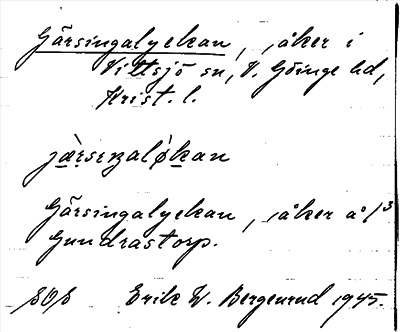 Gärsingalyckan, åker i
Vittsjö sn, V. Göinge hd,
Krist. l.
jæ̀rsıŋalǿkan
Gärsingalyckan, åker å 1/3
Gundrastorp.
SOS Erik W. Bergenrud 1945.